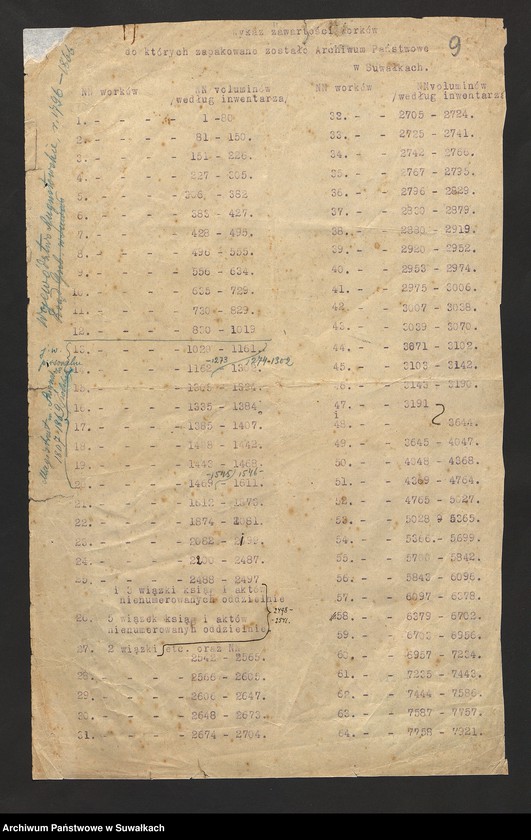 9
Wykaz zawartości worków
do których zapakowane zostało Archiwum Państwowe
w Suwałkach.
NN worków NN voluminów
/według inwentarza/
1. - - - - 1 - 80.
2. - - - - 81 - 150.
3. - - - - 151 - 226.
4. - - - - 227 - 305.
5. - - - - 306. - 382
6. - - - - 383 - 427.
7. - - - - 428 - 495.
8. - - - - 496 - 555.
9. - - - - 556 - 634.
10. - - - - 635 - 729.
11. - - - - 730 - 829.
12. - - - - 830 - 1019
13. - - - - 1020 - 1161.
-1273 1274-1302
14. - - - - 1162
15. - - - - 1324.
16. - - - - 1335 - 1384
17. - - - - 1385 - 1407.
18. - - - - 1408 - 1442.
19. - - - - 1443 - 1468.
-1545/1546-
20. - - - - 1469 - 1611.
21. - - - - 1612
22. - - - - 1874 - 2081.
23. - - - - 2082
24. - - - - 2200 - 2487.
25. - - - - 2488 - 2497
i 3 wiązki ksiąg i aktów
nienumerowanych oddzielnie
26. 5 wiązek ksiąg i aktów
nienumerowanych oddzielnie
2498-
-2541.
27. 2 wiązki etc. oraz Nº
2542 - 2565.
28. - - - - 2566 - 2605.
29. - - - - 2606 - 2647.
30. - - - - 2648 - 2673.
31. - - - - 2674 - 2704.
NN worków NN voluminów
/według inwentarza
32. - - 2705 - 2724.
33. - - 2725 - 2741.
34. - - 2742 - 2766.
35. - - 2767 - 2795.
36. - - 2796 - 2829.
37. - - 2830 - 2879.
38. - - 2880 - 2919.
39. - - 2920 - 2952.
40. - - 2953 - 2974.
41. - - 2975 - 3006.
42. - - 3007 - 3038.
43. - - 3039 - 3070.
44. - - 3071 - 3102.
45. - - 3103 - 3142.
46. - - 3143 - 3190.
47. - - 3191
i
48. - - 3644.
49. - - 3645 - 4047.
50. - - 4048 - 4368.
51. - - 4369 - 4764.
52. - - 4765 - 5027.
53. - - 5028 9 5365.
54. - - 5366. - 5699.
55. - - 5700 - 5842.
56. - - 5843 - 6096.
57. - - 6097 - 6378.
58. - - 6379 - 6702.
59. - - 6703 - 6956.
60. - - 6957 - 7234.
61. - - 7235 - 7443.
62. - - 7444 - 7586.
63. - - 7587 - 7757.
64. - - 7758 - 7921.
Województwo Augustowskie r. 1796-1866
Archiwum Państwowe w Suwałkach